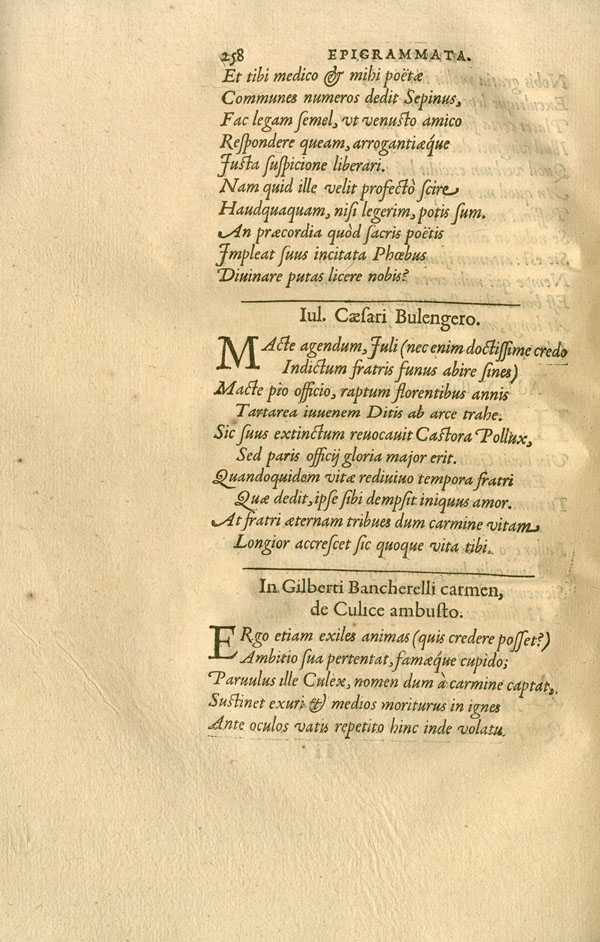 258 EPIGRAMMATA.
Et tibi medico & mihi poëtæ
Communes numeros dedit Sepinus,
Fac legam ſemel, vt venuſto amico
Reſpondere queam, arrogantiæque
Juſta ſuſpicione liberari.
Nam quid ille velit profectò ſcire
Haudquaquam, niſi legerim, potis ſum.
An præcordia quòd ſacris poëtis
Impleat ſuus incitata Phœbus
Diuinare putas licere nobis?
Iul. Cæſari Bulengero.
MActe agendum, Juli (nec enim doctiſſime credo
Indictum fratris funus abire ſines)
Macte pio officio, raptum florentibus annis
Tartarea iuuenem Ditis ab arce trahe.
Sic ſuus extinctum reuocauit Caſtora Pollux,
Sed paris officij gloria major erit.
Quandoquidem vitæ rediuiuo tempora fratri
Quæ dedit, ipſe ſibi dempſit iniquus amor.
At fratri æternam tribues dum carmine vitam
Longior accreſcet ſic quoque vita tibi.
In Gilberti Bancherelli carmen,
de Culice ambuſto.
ERgo etiam exiles animas (quis credere poſſet?)
Ambitio ſua pertentat, famæque cupido;
Paruulus ille Culex, nomen dum à carmine captat,
Suſtinet exuri & medios moriturus in ignes
Ante oculos vatis repetito hinc inde volatu.